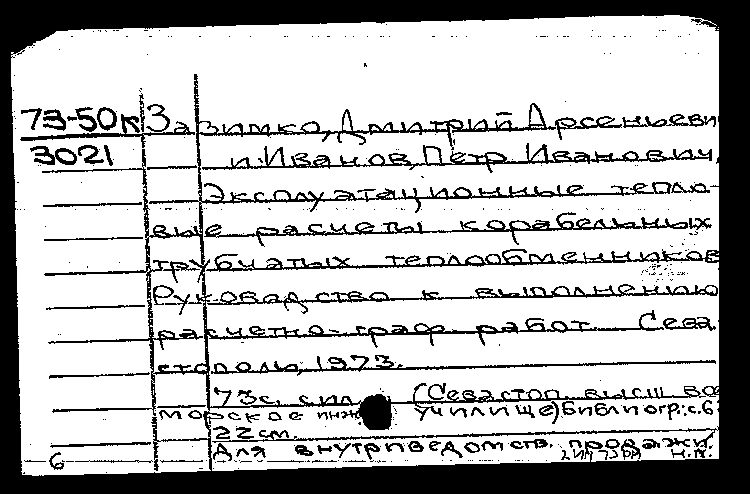 73-50к Зазимко, Дмитрий Арсеньеви
3021 и Иванов, Петр Иванович,
Эксплуатационные тепло-
вые расчеты корабельных
трубчатых теплообменников
Руководство к выполнению
расчетно-граф. работ. Сева
стополь, 1973.
73с. с ил. (Севастоп. высш. во
морское инж училище) Библиогр.: с. 6
22 см.
Для внутриведомств. продажи
6 н.п.